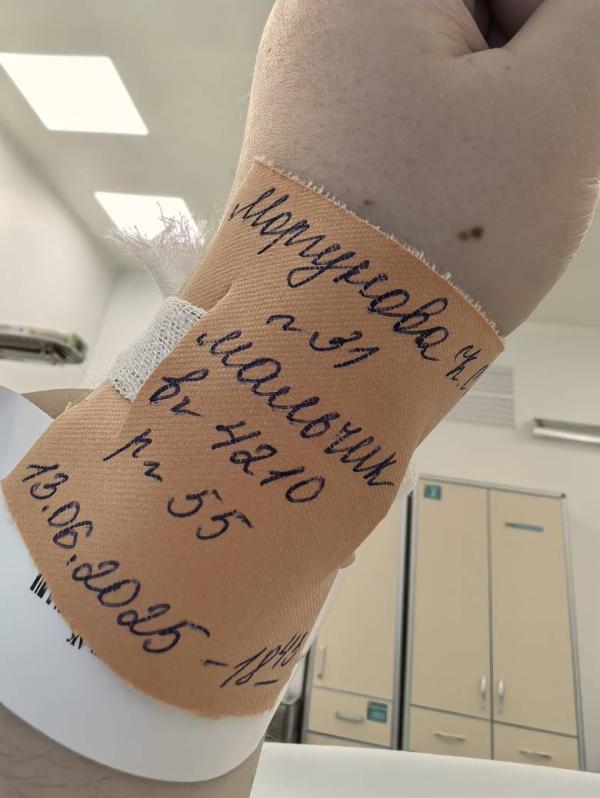 Моргунова К.С
п 31
мальчик
вг 4210
рг 55
13.06.2025 - 18 45